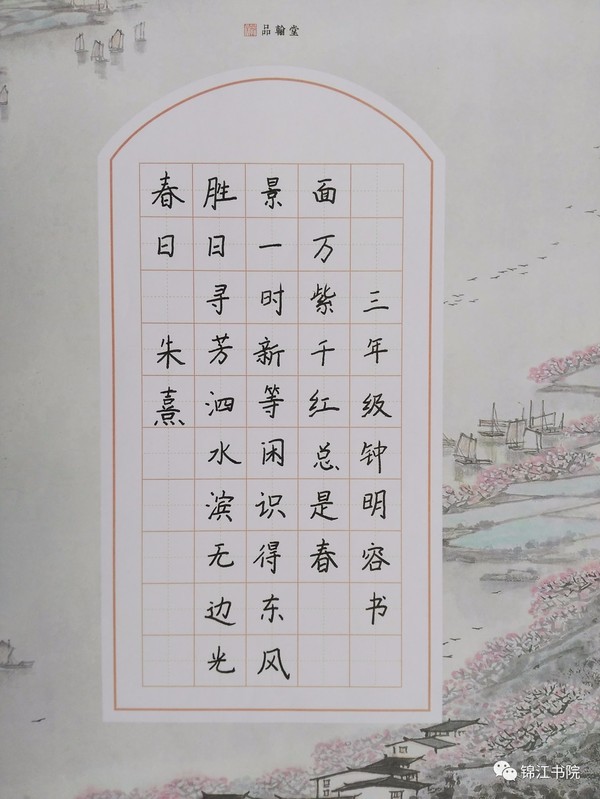 品翰堂
春日 朱熹
胜日寻芳泗水滨无边光
景一时新等闲识得东风
面万紫千红总是春
三年级钟明容书
锦江书院